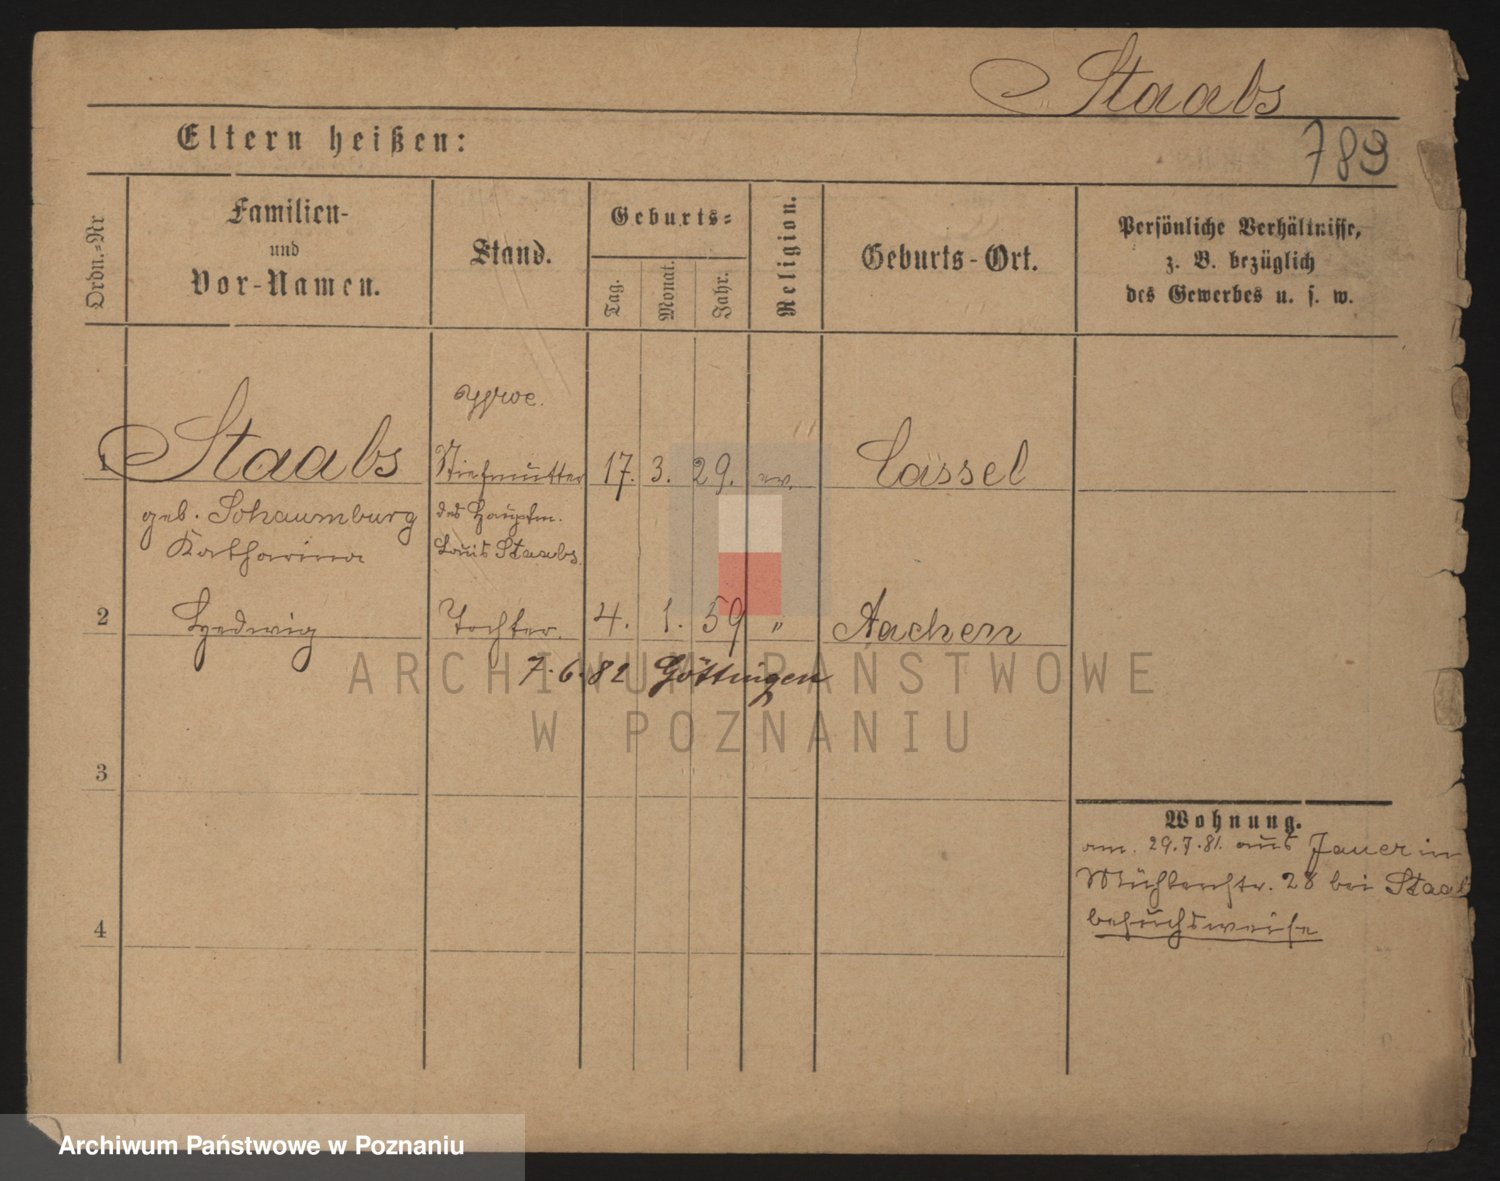 Staabs
Eltern heißen:
789
Ordn.-Nr
Familien-
und
Vor-Namen.
Stand.
Geburts-
Tag.
Monat.
Jahr.
Religion.
Geburts-Ort.
Persönliche Verhältnisse,
z. B. bezüglich
des Gewerbes u. s. w.
1 Staabs Stiefmutter 17. 3. 29. ev. Cassel
geb. Schaumburg des Hauptm.
Katharina Louis Staabs.
2 Hedwig Tochter. 4. 1. 59 " Aachen
7.6.82 Göttingen
ARCHIWUM PAŃSTWOWE
W POZNANIU
3
Wohnung.
am. 29.7.81. aus Jauer in
Mühlenstr. 28 bei Staab
besuchsweise
4
Archiwum Państwowe w Poznaniu